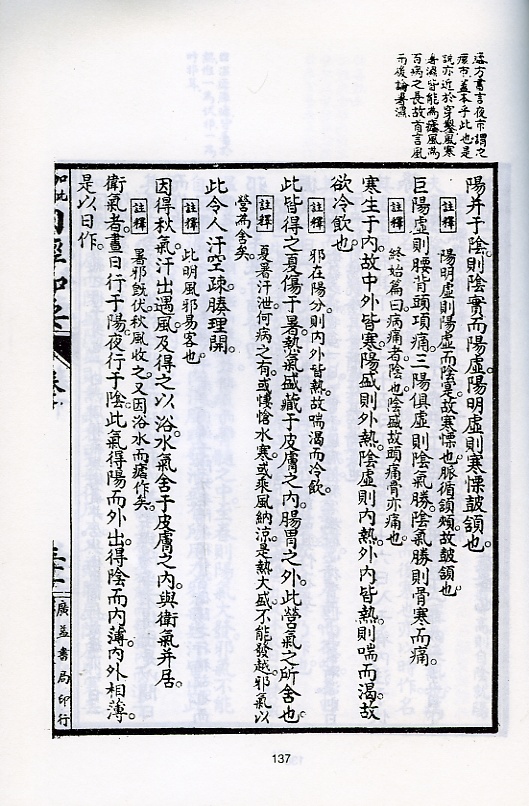 瘧市蓋本乎此也是
說亦近於穿鑿風寒
暑濕皆能為瘧風為
百病之長故首言風
而後論暑濕
陽并于陰則陰實而陽虛陽明虛則寒慄鼓頷也。
註釋 陽明虛則陽虛而陰實故寒慄也脈循頷頰故鼓頷也。
巨陽虛則腰背頭項痛。三陽俱虛則陰氣勝陰氣勝則骨寒而痛。
註釋 終始篇曰病痛者陰也陰盛故頭痛骨亦痛也
寒生于內故中外皆寒陽盛則外熱陰虛則內熱外內皆熱則喘而渴故
欲冷飲也。
註釋 邪在陽分則內外皆熱故喘渴而冷飲。
此皆得之夏傷于暑熱氣盛藏于皮膚之內腸胃之外此營氣之所舍也。
註釋 夏暑汗泄何病之有或悽愴水寒或乘風納涼是熱大盛不能發越邪氣以
營為舍矣。
此令人汗空疎腠理開。
註釋 此明風邪易客也。
因得秋氣汗出遇風及得之以浴水氣舍于皮膚之內與衛氣并居。
註釋 暑邪既伏秋風收之又因浴水而瘧作矣。
衛氣者晝日行于陽夜行于陰此氣得陽而外出得陰而內薄內外相薄。
是以日作。
廣益書局印行
137